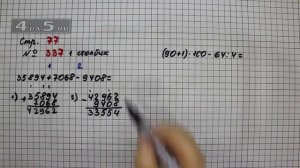 4 5.ru
Стр. 77
№ 337 1 столбик (90+1)·100-64:4=
1 2
35894+7068-9408=
1) +35894 2) -42962
7068 9408
42962 33554